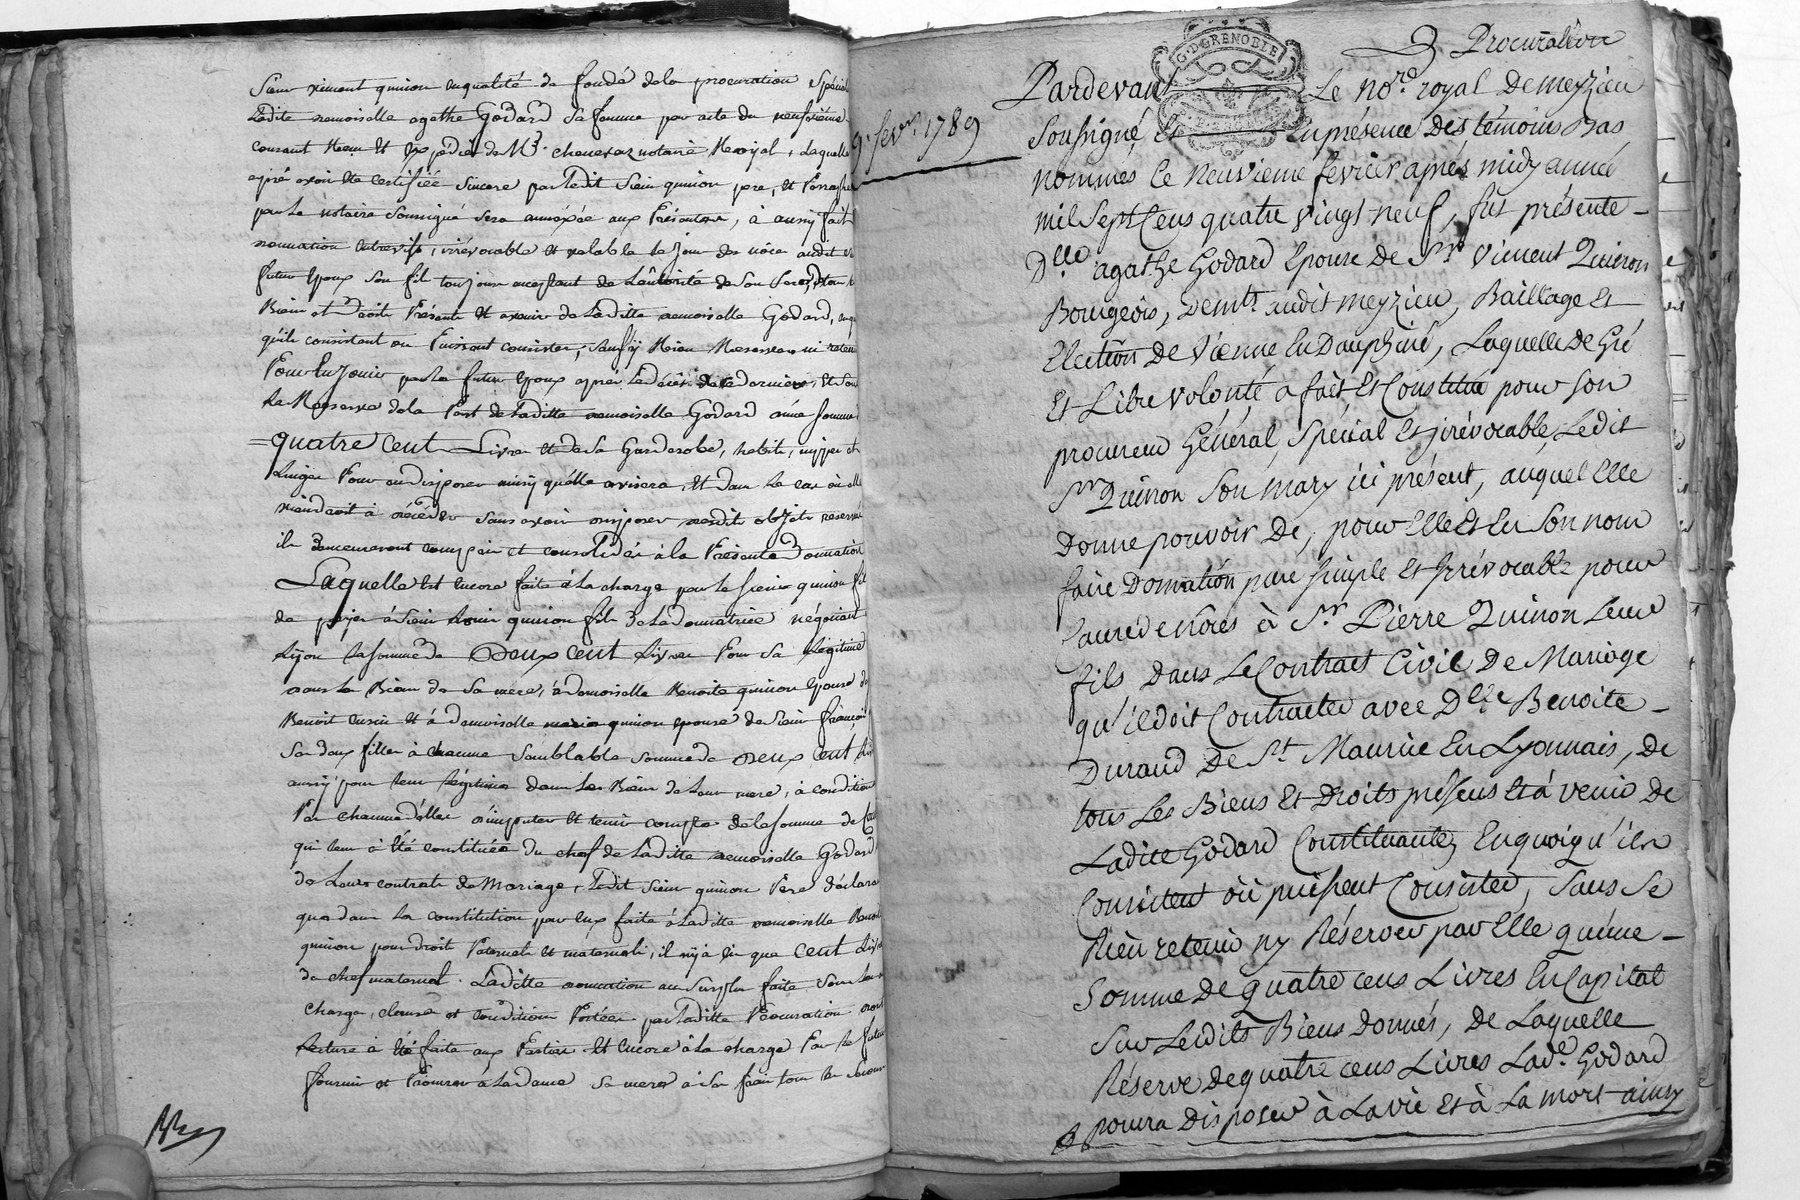 Sieur vincent quinon enqualité de fondé dela procuration Spéciale
Ladite demoiselle agathe Godard Sa femme par acte du neufvième
courant Recu et expédié de Me. chenevaz notaire Royal, Laquelle
apré avoir été certifiée Sincere par Ledit Sieur quinon pere, et
par Le notaire Soussigné Sera annéxée aux Présentes, à aussy fait
donnation entrevifs, irrévocable et valable Le jour des nôce audit
futur Epoux Son fil toujours acceptant de L'autorité de Son Pere,
Bien et Droits Présents et avenir de Laditte demoiselle Godard, en
qu'ils consistent ou Puissent consister, Sans y Rien Reserver ni retenir
Pour En Jouir par Le futur Epoux après Le décès de ce dernière, Et Sous
La Reserve de la Part de Laditte demoiselle Godard d'une Somme
=quatre cent Livre et de Sa Garderobe, habits, nippes et
Linges Pour en disposer ainsy qu'elle avisera, Et dans Le cas où elle
viendroit à décéder Sans avoir disposer desdits objets reservés
ils demeureront compris et consolidés à la Présente Donnation
Laquelle Est encore faite à La charge par Le Sieur quinon fil
de payer à Sieur quinon fil de La donnatrice négociant
Lyon La Somme de Deux cent Livres Pour Sa Légitime
dans Les Biens de Sa mère, à demoiselle Benoite quinon Epouse de
Benoit cusin et à demoiselle marie quinon épouse de Sieur françois
Ses deux filles à chacune Semblable Somme de Deux cent Livres
aussy pour leur Légitime dans Les Biens de Leur mere, à condition
Par chacune d'elles d'imputer et tenir compte de la Somme de
qui leur à été constituée du chef de Laditte demoiselle Godard
de Leurs contrats de Mariage, Ledit Sieur quinon Pere déclare
que dans La constitution par eux faite à Laditte demoiselle Benoite
quinon pour droits Paternels et maternels, il n'y à eu que cent Livres
de chef maternel. Laditte donnation au Surplus faite Sous Les
charges, clauses et conditions Portées par Laditte Procuration dont
Lecture à été faite aux Parties Et encore à La charge Par Le futur
fournir et Procurer à La dame Sa mere à Ses frais tous Les Secours
9. fevr. 1789
Procuration
G. D. GRENOBLE
Pardevant Le no.re royal De meyzieu
Soussigné et en présence Des témoins Bas
nommés Le neuvieme fevrier après midy année
mil Sept Cens quatre vingt neuf, fut présente -
D.lle agathe Godard Epouse de S.r Vincent Quinon
Bourgeois, Dem.t audit meyzieu, Baillage Et
Election de Vienne En Dauphiné, Laquelle De Gré
Et Libre volonté a fait Et Constitué pour Son
procureur Général, Spécial Et irrévocable, Ledit
S.r Quinon Son mary ici présent, auquel Elle
Donne pouvoir De, pour Elle Et En Son nom
faire Donnation pure simple Et Irrévocable pour
Cause de nôces à S.r Pierre Quinon Leur
fils Dans Le Contract Civil De Mariage
qu'il doit Contracter avec D.lle Benoite -
Durand De S.t Maurice En Lyonnais, De
tous Les Biens Et Droits présens Et à venir De
Ladite Godard Constituante, En quoi qu'ils
Consistent où puissent Consister, Sans Se
Rien retenir ny Réserver par Elle qu'une -
Somme De quatre cens Livres En Capital
Sur Lesdits Biens Donnés, De Laquelle
Réserve De quatre cens Livres Lad.e Godard
pourra Disposer à La vie Et à La mort ainsy